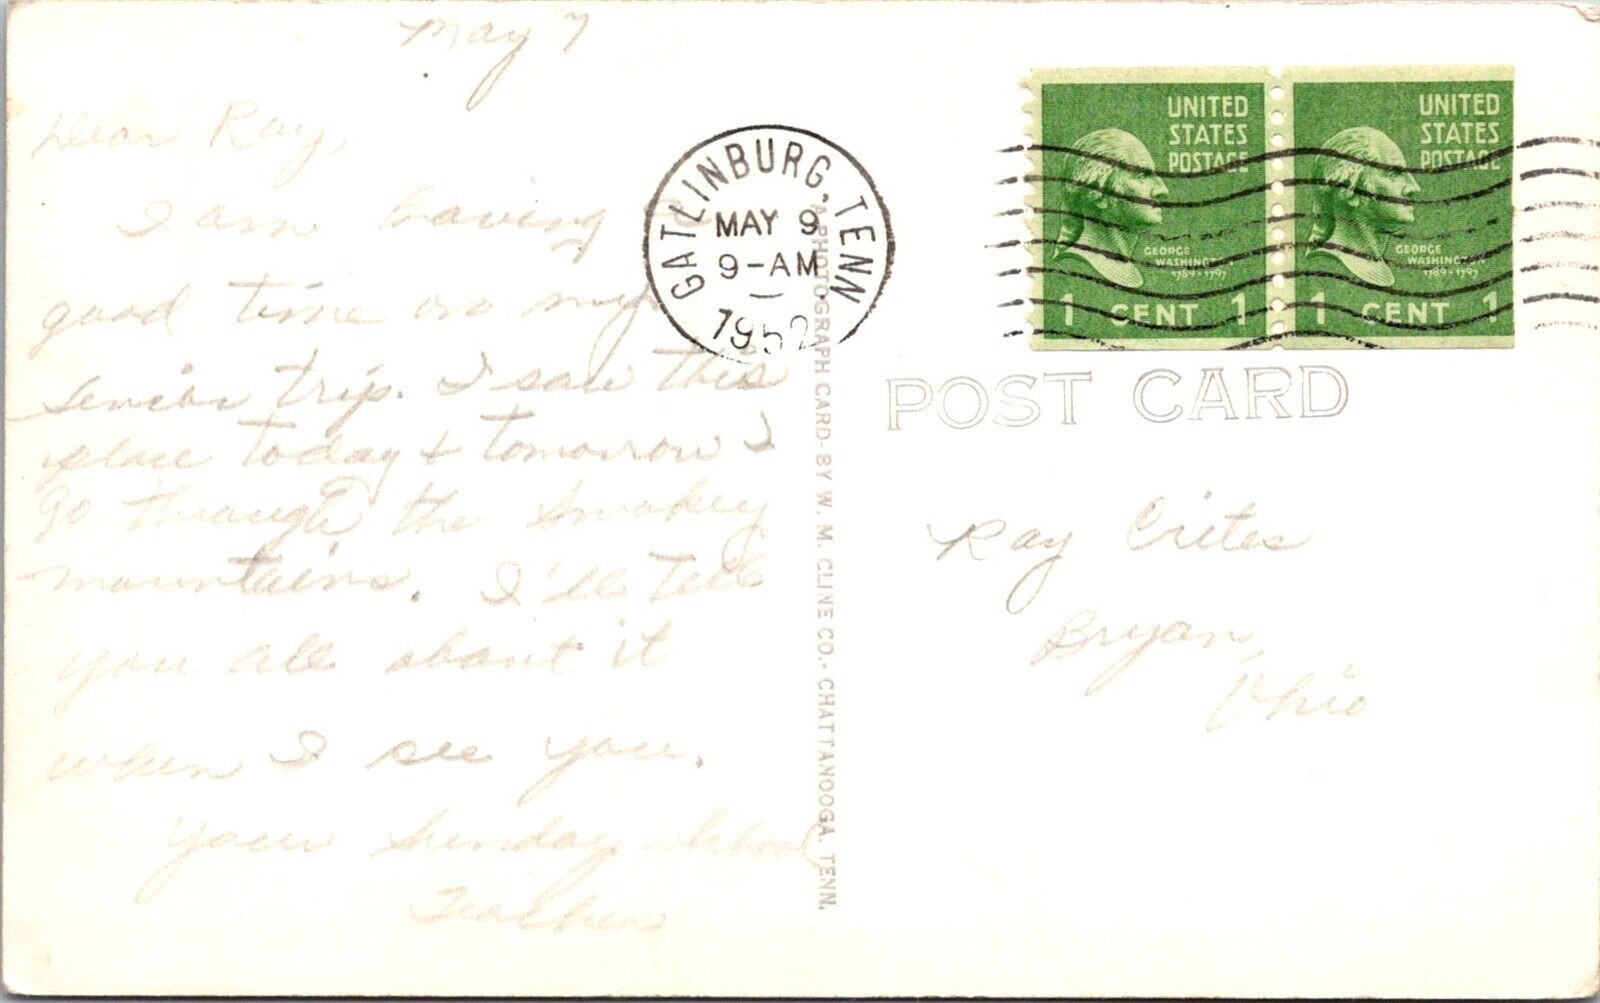 May 7
Dear Ray,
I am having a
good time on my
senior trip. I saw this
place today & tomorrow I
go through the Smokey
mountains. I'll tell
you all about it
when I see you.
Your Sunday School
Teacher
GATLINBURG, TENN.
MAY 9
9-AM
1952
A PHOTOGRAPH CARD-BY W. M. CLINE CO.- CHATTANOOGA, TENN.
UNITED
STATES
POSTAGE
GEORGE
WASHINGTON
1789-1797
1 CENT 1
UNITED
STATES
POSTAGE
GEORGE
WASHINGTON
1789-1797
1 CENT 1
POST CARD
Ray Crites
Bryan,
Ohio